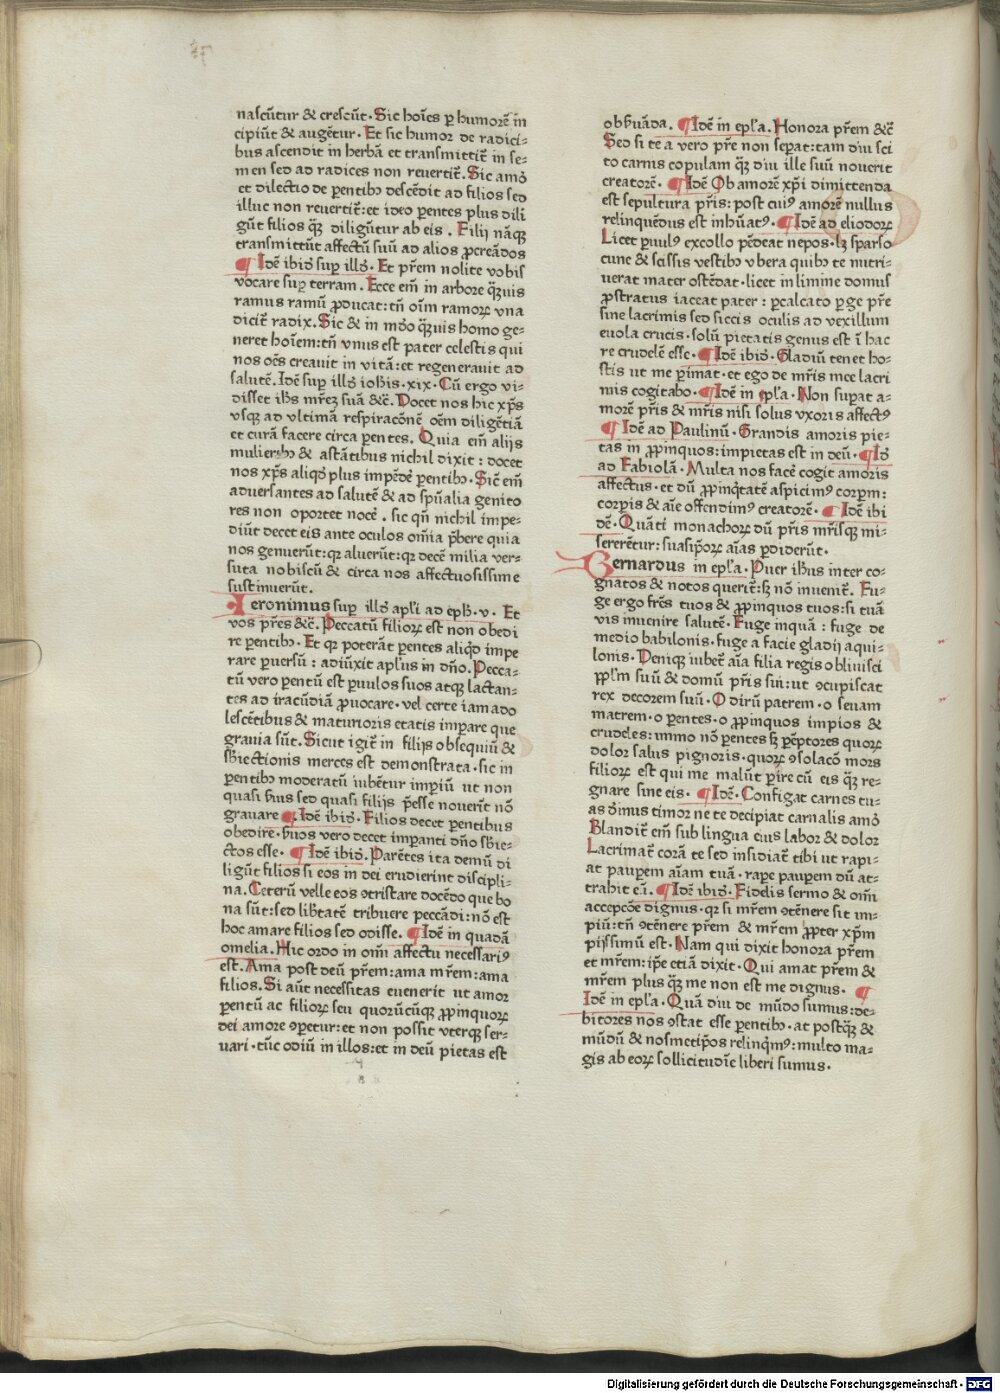 nascūtur & crescūt. Sic hoīes ꝑ humorē in
cipiūt & augētur. Et sic humor de radici⸗
bus ascendit in herbā et transmittit̄ in se⸗
men sed ad radices non revertit̄. Sic amo᷑
et dilectio de ꝑentibꝫ descēdit ad filios sed
illuc non revertit̄: et ideo ꝑentes plus dili
gūt filios qꝫ̄ diligūtur ab eis. Filij nāqꝫ
transmittūt affectū suū ad alios ꝓcreādos
¶ Idē ibid᷑ suꝑ illo᷑. Et pr̄em nolite vobis
vocare suꝑ terram. Ecce em̄ in arbore qꝫ̄uis
ramus ramū ꝓducat: tn̄ oīm ramoꝝ vna
dicit̄ radix. Sic & in mo᷑o qꝫ̄uis homo ge⸗
neret hoīem: tn̄ vnus est pater celestis qui
nos oēs creauit in vitā: et regenerauit ad
salutē. Idē suꝑ illo᷑ ioh̄is. xix. Cū ergo vi⸗
disset ih̄s mr̄eꝫ suā &c̄. Docet nos hic xp̄s
vsqꝫ ad vltimā respiracōnē oēm diligētiā
et curā facere circa ꝑentes. Quia em̄ alijs
mulieribꝫ & astātibus nichil dixit: docet
nos xp̄s aliqd᷑ plus impēde᷑ ꝑentibꝫ. Sic̄ em̄
aduersantes ad salutē & ad spūalia genito
res non oportet noce᷑. sic qn̄ nichil impe⸗
diūt decet eis ante oculos om̄ia p̄bere quia
nos genuerūt: qꝛ aluerūt: qꝛ decē milia ver⸗
suta nobiscū & circa nos affectuosissime
sustinuerūt.
Ieronimus suꝑ illo᷑ apl̄i ad eph̄. v. Et
vos pr̄es &c̄. Peccatū filioꝝ est non obedi
re ꝑentibꝫ. Et qꝛ poterāt ꝑentes aliqd᷑ impe
rare ꝑuersū: adiūxit apl̄us in dn̄o. Pecca⸗
tū vero ꝑentū est ꝑuulos suos atqꝫ lactan⸗
tes ad iracūdiā ꝓuocare. vel certe iam ado
lescētibus & maturioris etatis imꝑare que
grauia sūt. Sicut igit̄ in filijs obsequiū &
sb̄iectionis merces est demonstrata. sic in
ꝑentibꝫ moderatū iubētur imꝑiū ut non
quasi s̄uis sed quasi filijs p̄esse nouerīt nō
grauare ¶ Idē ibid᷑. Filios decet ꝑentibus
obedire. s̄uos vero decet imꝑanti dn̄o sb̄ie⸗
ctos esse. ¶ Idē ibid᷑. Parētes ita demū di
ligūt filios si eos in dei erudierīnt discipli⸗
na. Ceterū velle eos ꝯtristare docēdo que bo
na sūt: sed lib̄tatē tribuere peccādi: nō est
hoc amare filios sed odisse. ¶ Idē in quadā
omelia. Hic ordo in om̄i affectu necessariꝰ
est. Ama post deū pr̄em: ama mr̄em: ama
filios. Si aūt necessitas euenerit ut amor
ꝑentū ac filioꝝ seu quorūcūqꝫ ꝓpinquoꝝ
dei amore ꝯꝑetur: et non possit vterqꝫ ser⸗
uari. tūc odiū in illos: et in deū pietas est
obs̄uāda. ¶ Idē in epl̄a. Honora pr̄em &c̄
Sed si te a vero pr̄e non seꝑat: tam diu sci
to carnis copulam qꝫ̄ diu ille suū nouerit
creatorē. ¶ Idē Ob amorē xp̄i dimittenda
est sepultura pr̄is: post cuiꝰ amorē nullus
relinquēdus est inhūatꝰ. ¶ Idē ad eliodoꝝ
Licet ꝑuulꝰ ex collo pēdeat nepos. lꝫ sparso
cune & scissis vestibꝫ vbera quibꝫ te nutri⸗
uerat mater ostēdat. licet in limine domus
ꝓstratus iaceat pater: ꝑ calcato ꝑge pr̄e
sine lacrimis sed siccis oculis ad vexillum
euola crucis. solū pietatis genus est ī hac
re crudelē esse. ¶ Idē ibid᷑. Gladiū tenet ho⸗
stis ut me ꝑimat. et ego de mr̄is mee lacri
mis cogitabo. ¶ Idē in epl̄a. Non suꝑat a⸗
morē pr̄is & mr̄is nisi solus vxoris affectꝰ
¶ Idē ad Paulinū. Grandis amoris pie⸗
tas in ꝓpinquos: impietas est in deū. ¶ Id᷑
ad Fabiolā. Multa nos face᷑ cogit amoris
affectus. et dū ꝓpinq̄tatē aspicimꝰ corꝑm:
corꝑis & aīe offendimꝰ creatorē. ¶ Idē ibi
dē. Quāti monachoꝝ dū pr̄is mr̄isqꝫ mi⸗
sererētur: suas ip̄oꝝ aīas ꝑdiderūt.
Bernardus in epl̄a. Puer ih̄us inter co⸗
gnatos & notos querit̄: sꝫ nō inuenit̄. Fu⸗
ge ergo fr̄es tuos & ꝓpinquos tuos: si tuā
vis inuenire salutē. Fuge inquā: fuge de
medio babilonis. fuge a facie gladij aqui⸗
lonis. Deniqꝫ iubet̄ aīa filia regis obliuisci
ppl̄m suū & domū pr̄is sui: ut ꝯcupiscat
rex decorem suū. O dirū patrem. o seuam
matrem. o ꝑentes. o ꝓpinquos impios &
crudeles: immo nō ꝑentes sꝫ ꝑēptores quoꝝ
dolor salus pignoris. quoꝝ ꝯsolacō mors
filioꝝ est qui me malūt ꝑire cū eis qꝫ̄ re⸗
gnare sine eis. ¶ Idē. Configat carnes tu⸗
as dīmus timor ne te decipiat carnalis amo᷑
Blandit̄ em̄ sub lingua eius labor & dolor
Lacrimat̄ corā te sed insidiat̄ tibi ut rapi⸗
at pauꝑem aīam tuā. raꝑe pauꝑem dū at⸗
trahit eū. ¶ Idē ibid᷑. Fidelis sermo & om̄i
accepcōe dignus. qꝛ si mr̄em ꝯtēnere sit im⸗
piū: tn̄ ꝯtēnere pr̄em & mr̄em ꝓpter xp̄m
pijssimū est. Nam qui dixit honora pr̄em
et mr̄em: ip̄e etiā dixit. Qui amat pr̄em &
mr̄em plus qꝫ̄ me non est me dignus. ¶
Idē in epl̄a. Quā diu de mūdo sumus: de⸗
bitores nos ꝯstat esse ꝑentibꝫ. at postqꝫ̄ &
mūdū & nosmetip̄os relinqm̄ꝰ: multo ma⸗
gis ab eoꝝ sollicitudīe liberi sumus.
Digitalisierung gefördert durch die Deutsche Forschungsgemeinschaft - DFG